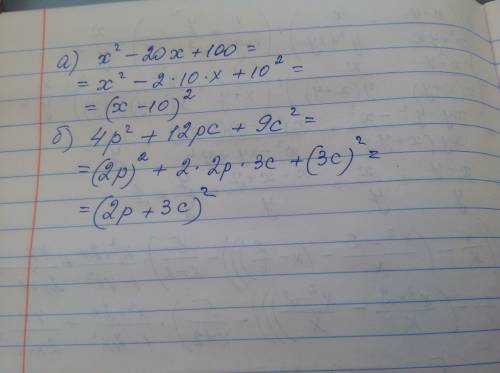 а) x² − 20x + 100 =
= x² − 2 · 10 · x + 10² =
= (x − 10)²
б) 4p² + 12pc + 9c² =
= (2p)² + 2 · 2p · 3c + (3c)² =
= (2p + 3c)²